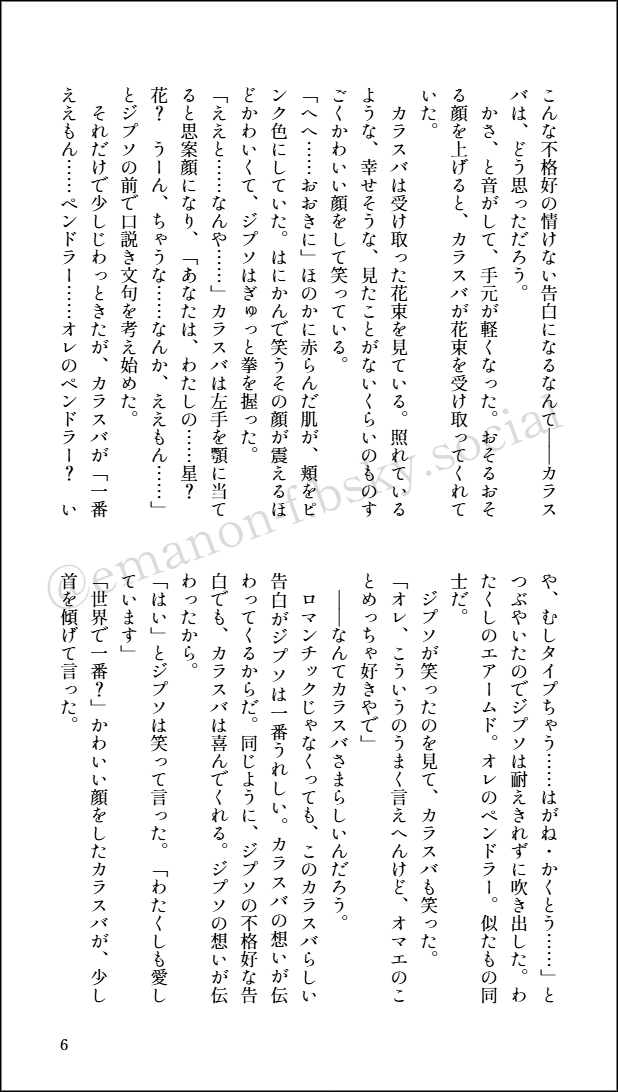 こんな不格好の情けない告白になるなんて――カラス
バは、どう思っただろう。
　かさ、と音がして、手元が軽くなった。おそるおそ
る顔を上げると、カラスバが花束を受け取ってくれて
いた。
　カラスバは受け取った花束を見ている。照れている
ような、幸せそうな、見たことがないくらいのものす
ごくかわいい顔をして笑っている。
「へへ……おおきに」ほのかに赤らんだ肌が、頬をピ
ンク色にしていた。はにかんで笑うその顔が震えるほ
どかわいくて、ジプソはぎゅっと拳を握った。
「ええと……なんや……」カラスバは左手を顎に当て
ると思案顔になり、「あなたは、わたしの……星？
花？　うーん、ちゃうな……なんか、ええもん……」
とジプソの前で口説き文句を考え始めた。
　それだけで少しじわっときたが、カラスバが「一番
ええもん……ペンドラー……オレのペンドラー？　い
や、むしタイプちゃう……はがね・かくとう……」と
つぶやいたのでジプソは耐えきれずに吹き出した。わ
たくしのエアームド。オレのペンドラー。似たもの同
士だ。
　ジプソが笑ったのを見て、カラスバも笑った。
「オレ、こういうのうまく言えへんけど、オマエのこ
とめっちゃ好きやで」
　――なんてカラスバさまらしいんだろう。
　ロマンチックじゃなくっても、このカラスバらしい
告白がジプソは一番うれしい。カラスバの想いが伝
わってくるからだ。同じように、ジプソの不格好な告
白でも、カラスバは喜んでくれる。ジプソの想いが伝
わったから。
「はい」とジプソは笑って言った。「わたくしも愛し
ています」
「世界で一番？」かわいい顔をしたカラスバが、少し
首を傾げて言った。
6
@emanon-f.bsky.social